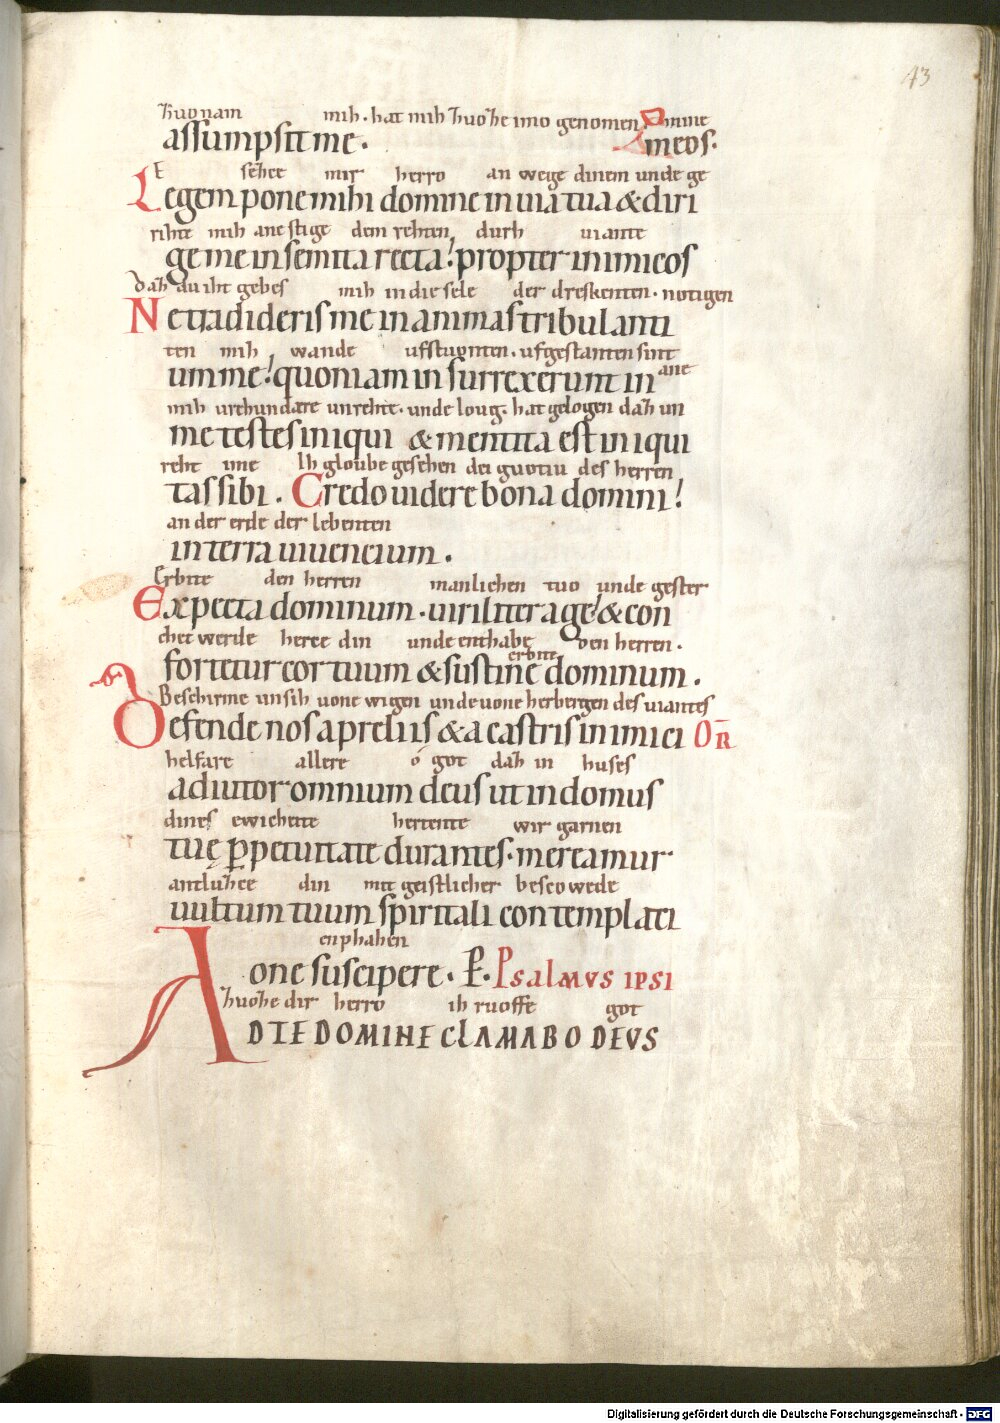 43
zuonam mih. hat mih zuoze imo genomen mine
assumpsit me. meos.
E sezce mir herro an wege dinem unde ge
Legem pone mihi domine in uia tua & diri
rihte mih ane stige dem rehten durh uiante
ge me in semita recta! propter inimicos
daz du iht gebes mih in die sele der dreskenten. notigen
Ne tradideris me in animas tribulanti
ten mih wande ufstuonten. ufgestanten sint
um me! quoniam insurrexerunt in ane
mih urchundare unrehte. unde loug. hat gelogen daz un
me testes iniqui & mentita est iniqui
reht ime Ih gloube gesehen dei guotiu des herren
tas sibi. Credo uidere bona domini!
an der erde der lebenten
in terra uiuencium.
Erbite den herren manlichen tuo unde gester
Expecta dominum. uiriliter age! & con
chet werde herce din unde enthabe den herren.
erbite
fortetur cor tuum & sustine dominum.
Beschirme unsih uone wigen unde uone herbergen des uiantes
Defende nos a preliis & a castris inimici OR
helfare allere o got daz in huses
adiutor omnium deus ut in domus
dines ewicheite hertente wir garnen
tuę ꝑpetuitate durantes. mereamur
antluzce din mit geistlicher bescowede
uultum tuum spiritali contemplati
enphahen
one suscipere. P. Psalmvs ipsi
zuoze dir herro ih ruoffe got
AD TE DOMINE CLAMABO DEVS
Digitalisierung gefördert durch die Deutsche Forschungsgemeinschaft - DFG